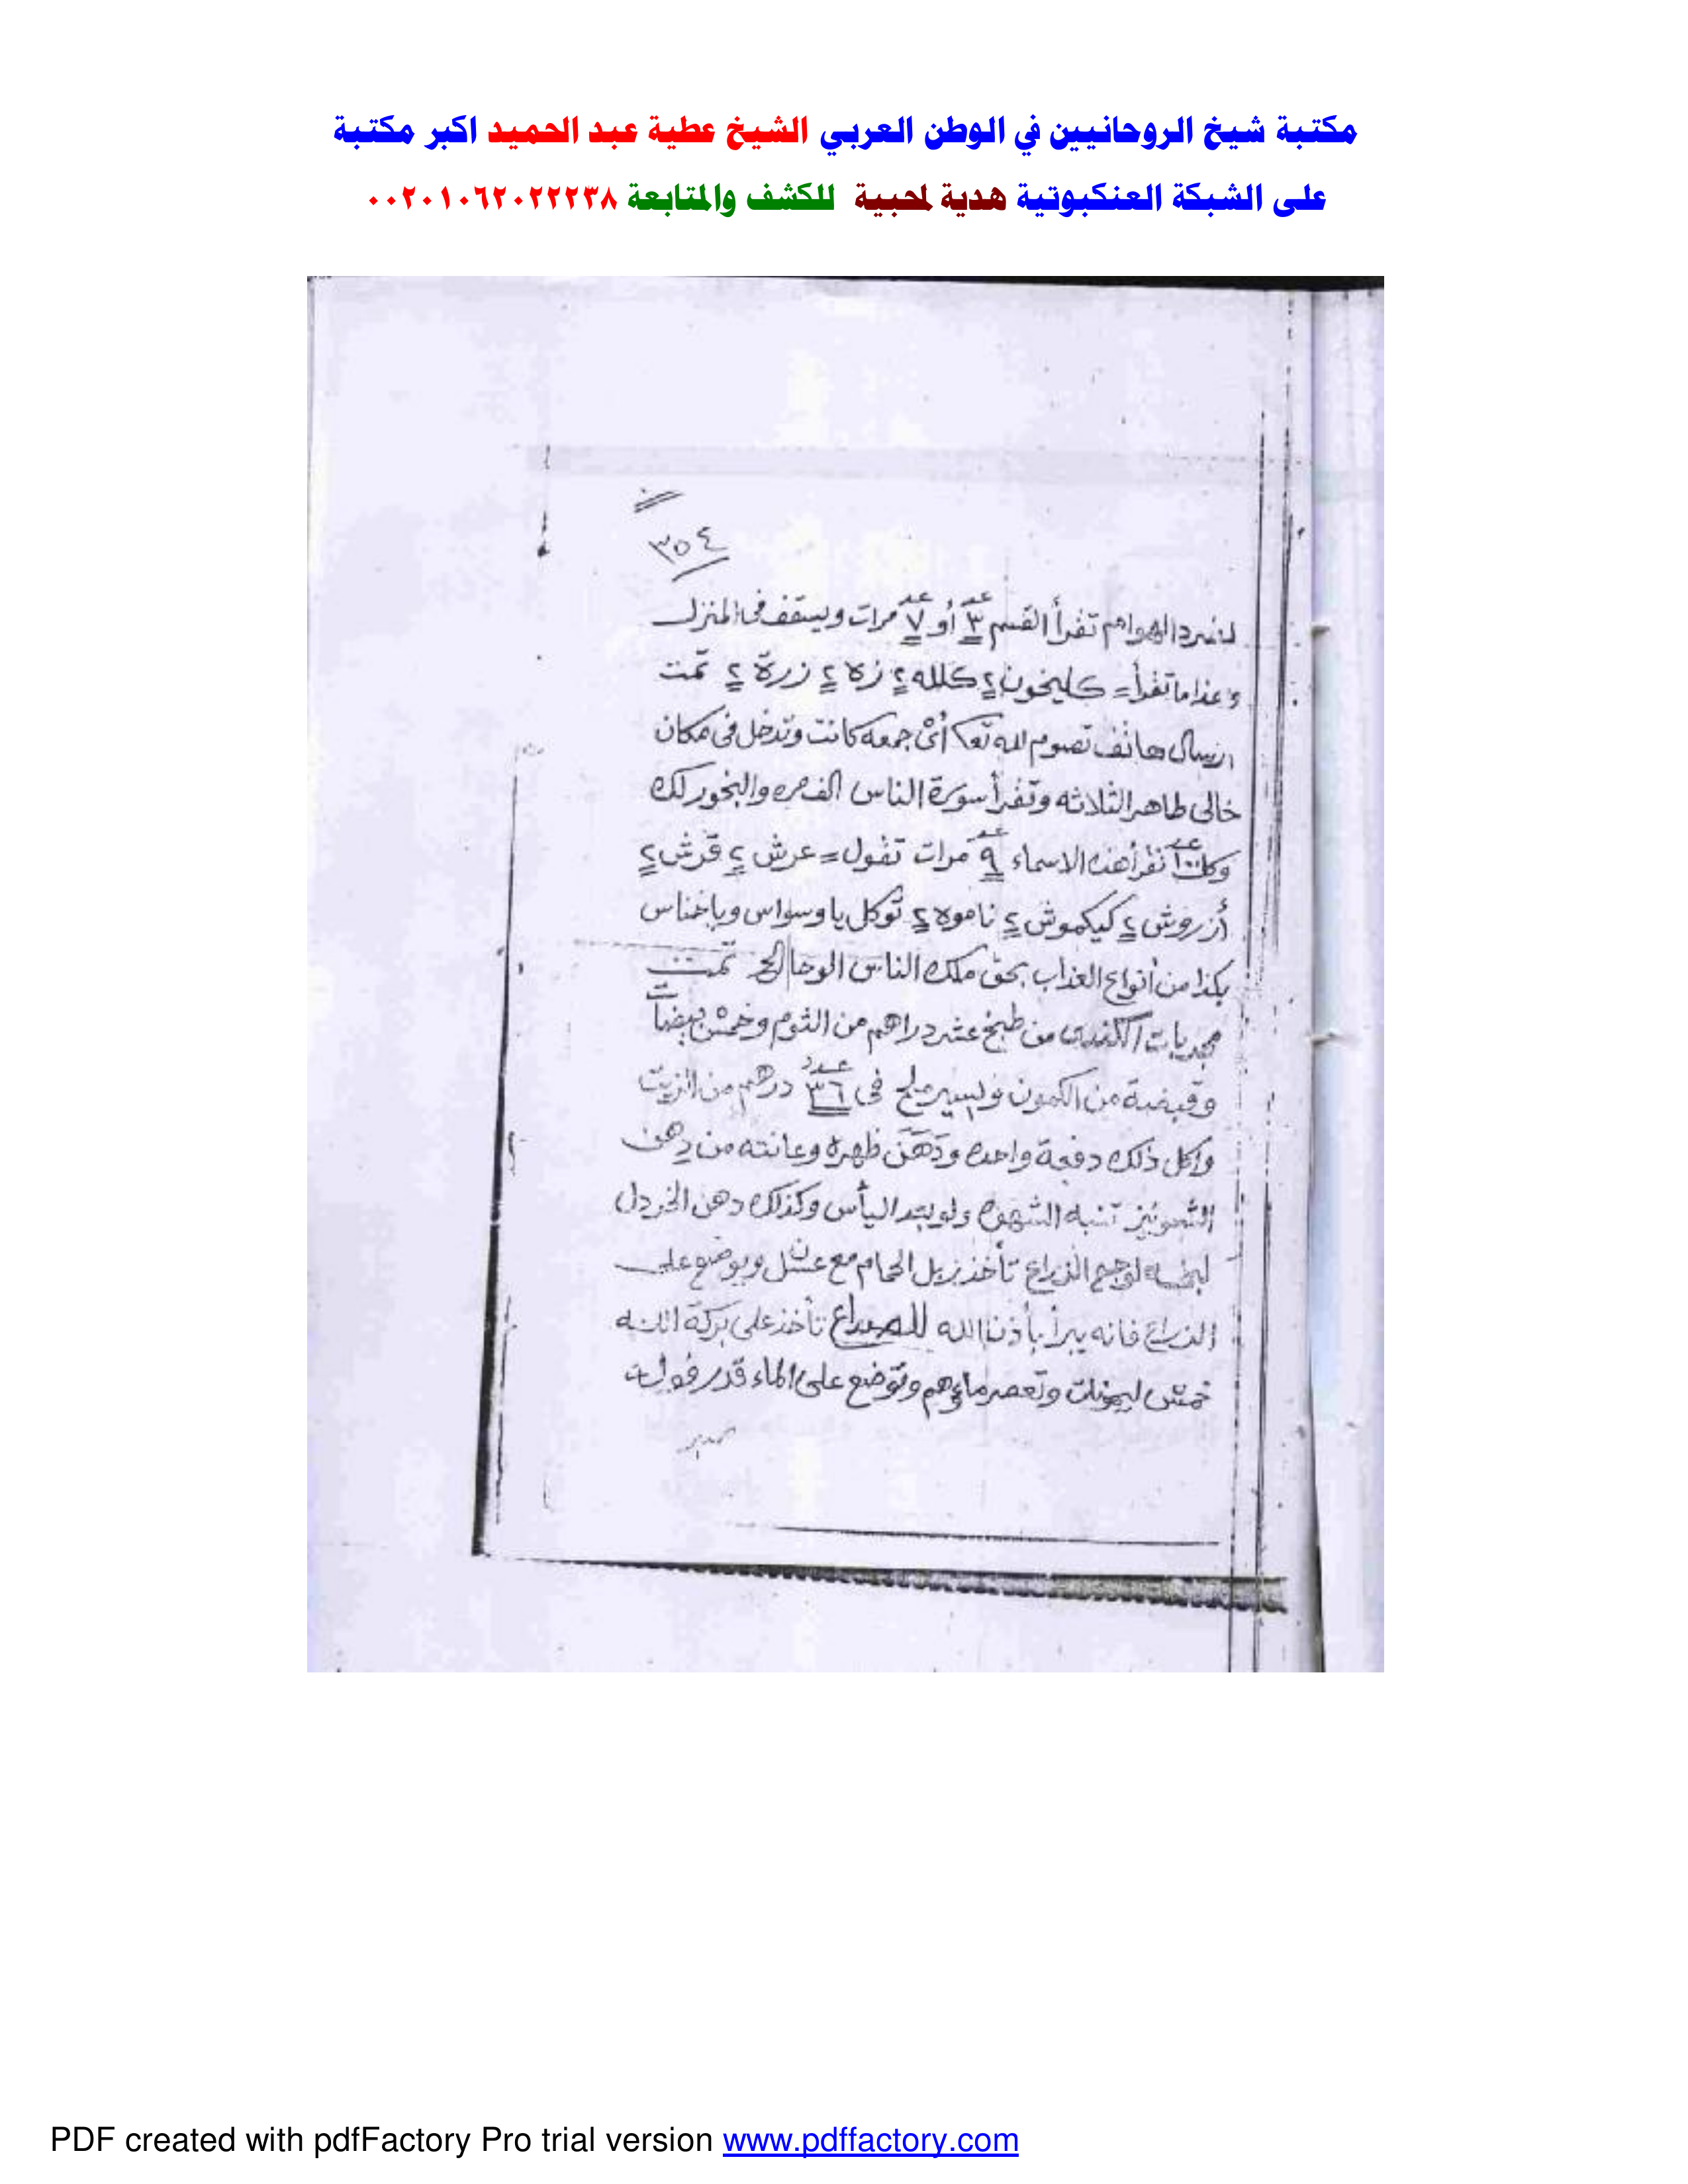 مكتبة شيخ الروحانيين في الوطن العربي الشيخ عطية عبد الحميد اكبر مكتبة
على الشبكة العنكبوتية هدية لمحبية للكشف والمتابعة ٠٠٢٠١٠٦٢٠٢٢٢٣٨
٣٥٤
الهوام تقرأ القسم عـ٣ـد أو عـ٧ـد مرات ويسقف فى المنزل
ما تقرأ = كليخون ٢ كلله ٢ زه ٢ زرة ٢ تمت
ارسال هاتف تصوم لله تعا أى جمعه كانت وتدخل فى مكان
خالى طاهر الثلاثه وتقرأ سورة الناس الف مره والبخور لك
وكل ١٠٠ تقرأ هذه الاسماء ٩ مرات تقول = عرش ٢ قرش ٢
أزروش ٢ كيكموش ٢ ناموه ٢ توكل يا وسواس ويا خناس
بكذا من أنواع العذاب بحق ملك الناس الوحا الخ تمت
مجربات الكندى من طبخ عشر دراهم من الثوم وخمس بيضات
وقبضة من الكمون ويسير ملح فى عدد ٣٦ درهم من الزيت
وأكل ذلك دفعة واحده ودهن ظهره وعانته من دهن
الشونيز تنبه الشهوه ولو بعد اليأس وكذلك دهن الخردل
لوجع الذراع تأخذ زبل الحمام مع عسل ويوضع على
الذراع فانه يبرأ بأذن الله للصداع تأخذ على بركة الله
خمس ليمونات وتعصر ماءهم وتوضع على الماء قدر فولة
PDF created with pdfFactory Pro trial version www.pdffactory.com